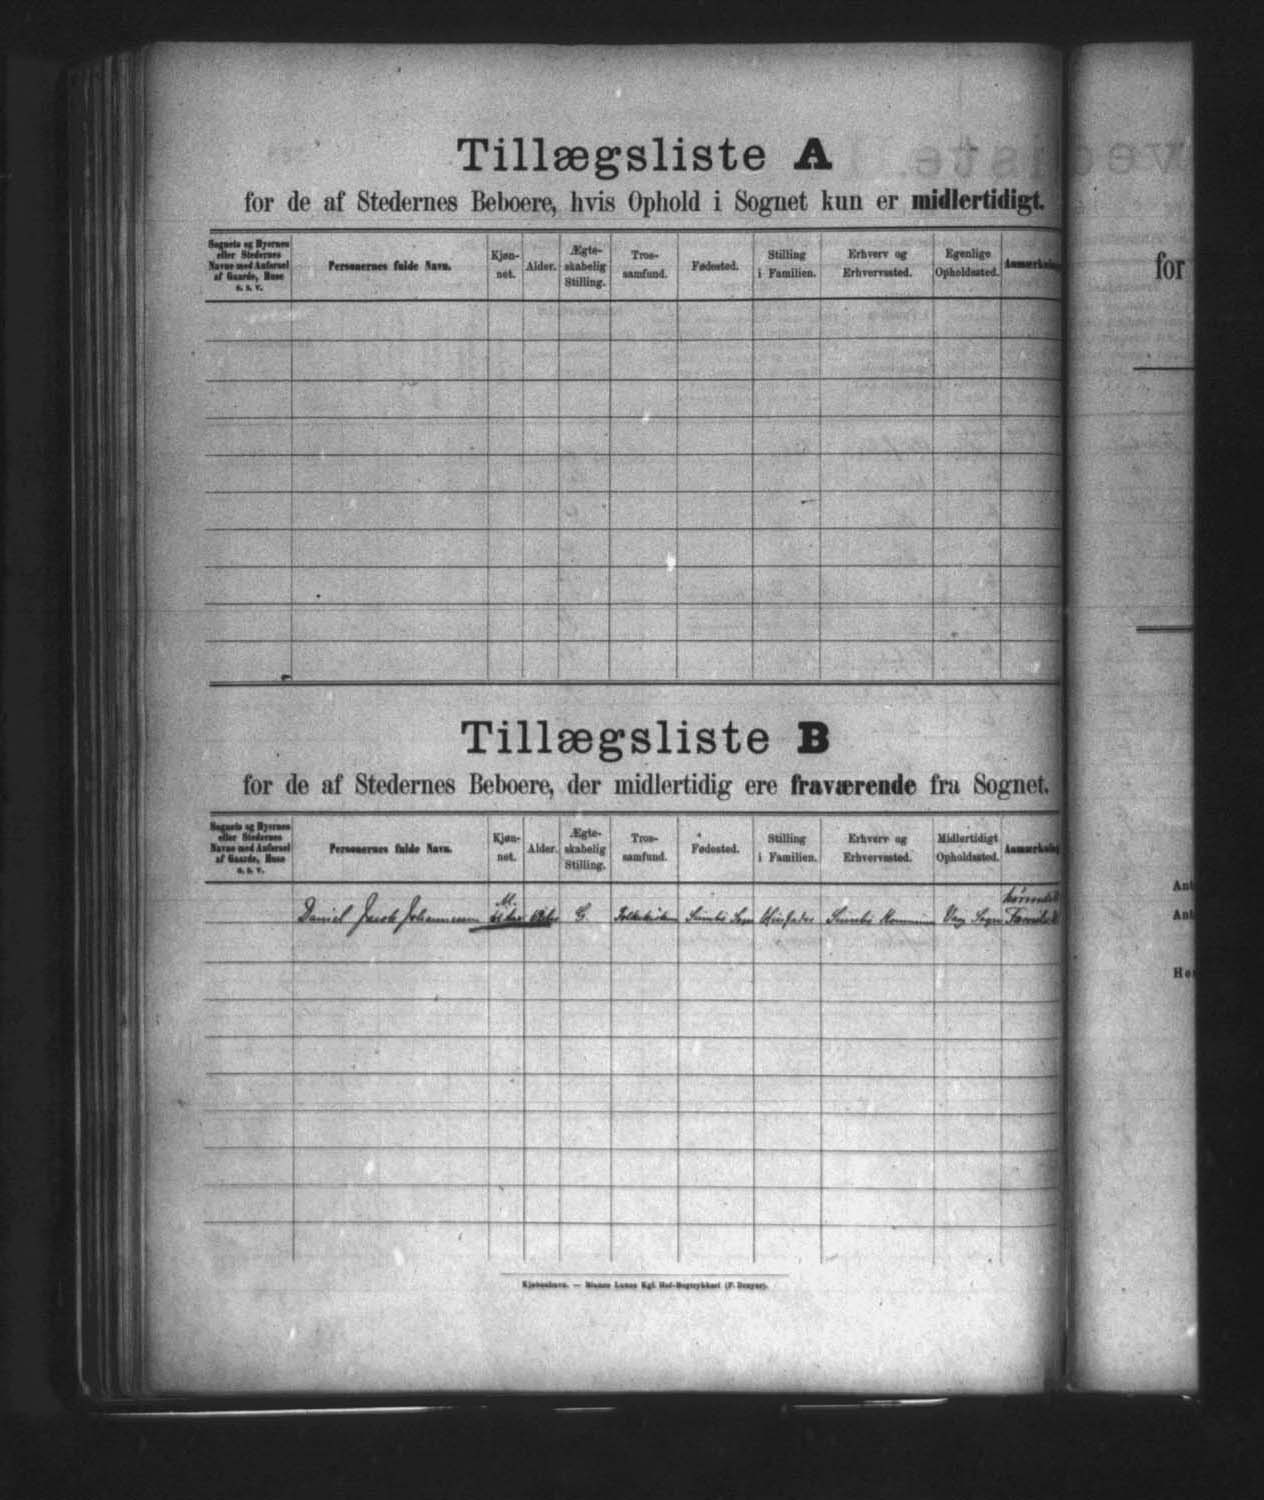 Tillægsliste A
for de af Stedernes Beboere, hvis Ophold i Sognet kun er midlertidigt.
Sognets og Byernes eller Stedernes Navne med Anførsel af Gaarde, Huse o. s. v.
Personernes fulde Navn.
Kjøn-net.
Alder.
Ægte-skabelig Stilling.
Tros-samfund.
Fødested.
Stilling i Familien.
Erhverv og Erhvervssted.
Egenlige Opholdssted.
Anmærkning
for
Tillægsliste B
for de af Stedernes Beboere, der midlertidig ere fraværende fra Sognet.
Sognets og Byernes eller Stedernes Navne med Anførsel af Gaarde, Huse o. s. v.
Personernes fulde Navn.
Kjøn-net.
Alder.
Ægte-skabelig Stilling.
Tros-samfund.
Fødested.
Stilling i Familien.
Erhverv og Erhvervssted.
Midlertidigt Opholdssted.
Anmærkning
Daniel Jacob Johannesen M. G. Folkekirken Sumbø Sogn Husfader Sumbø Kommune Vaag Sogn
Ant
Ant
Kjøbenhavn. — Bianco Lunos Kgl. Hof-Bogtrykkeri (F. Dreyer).